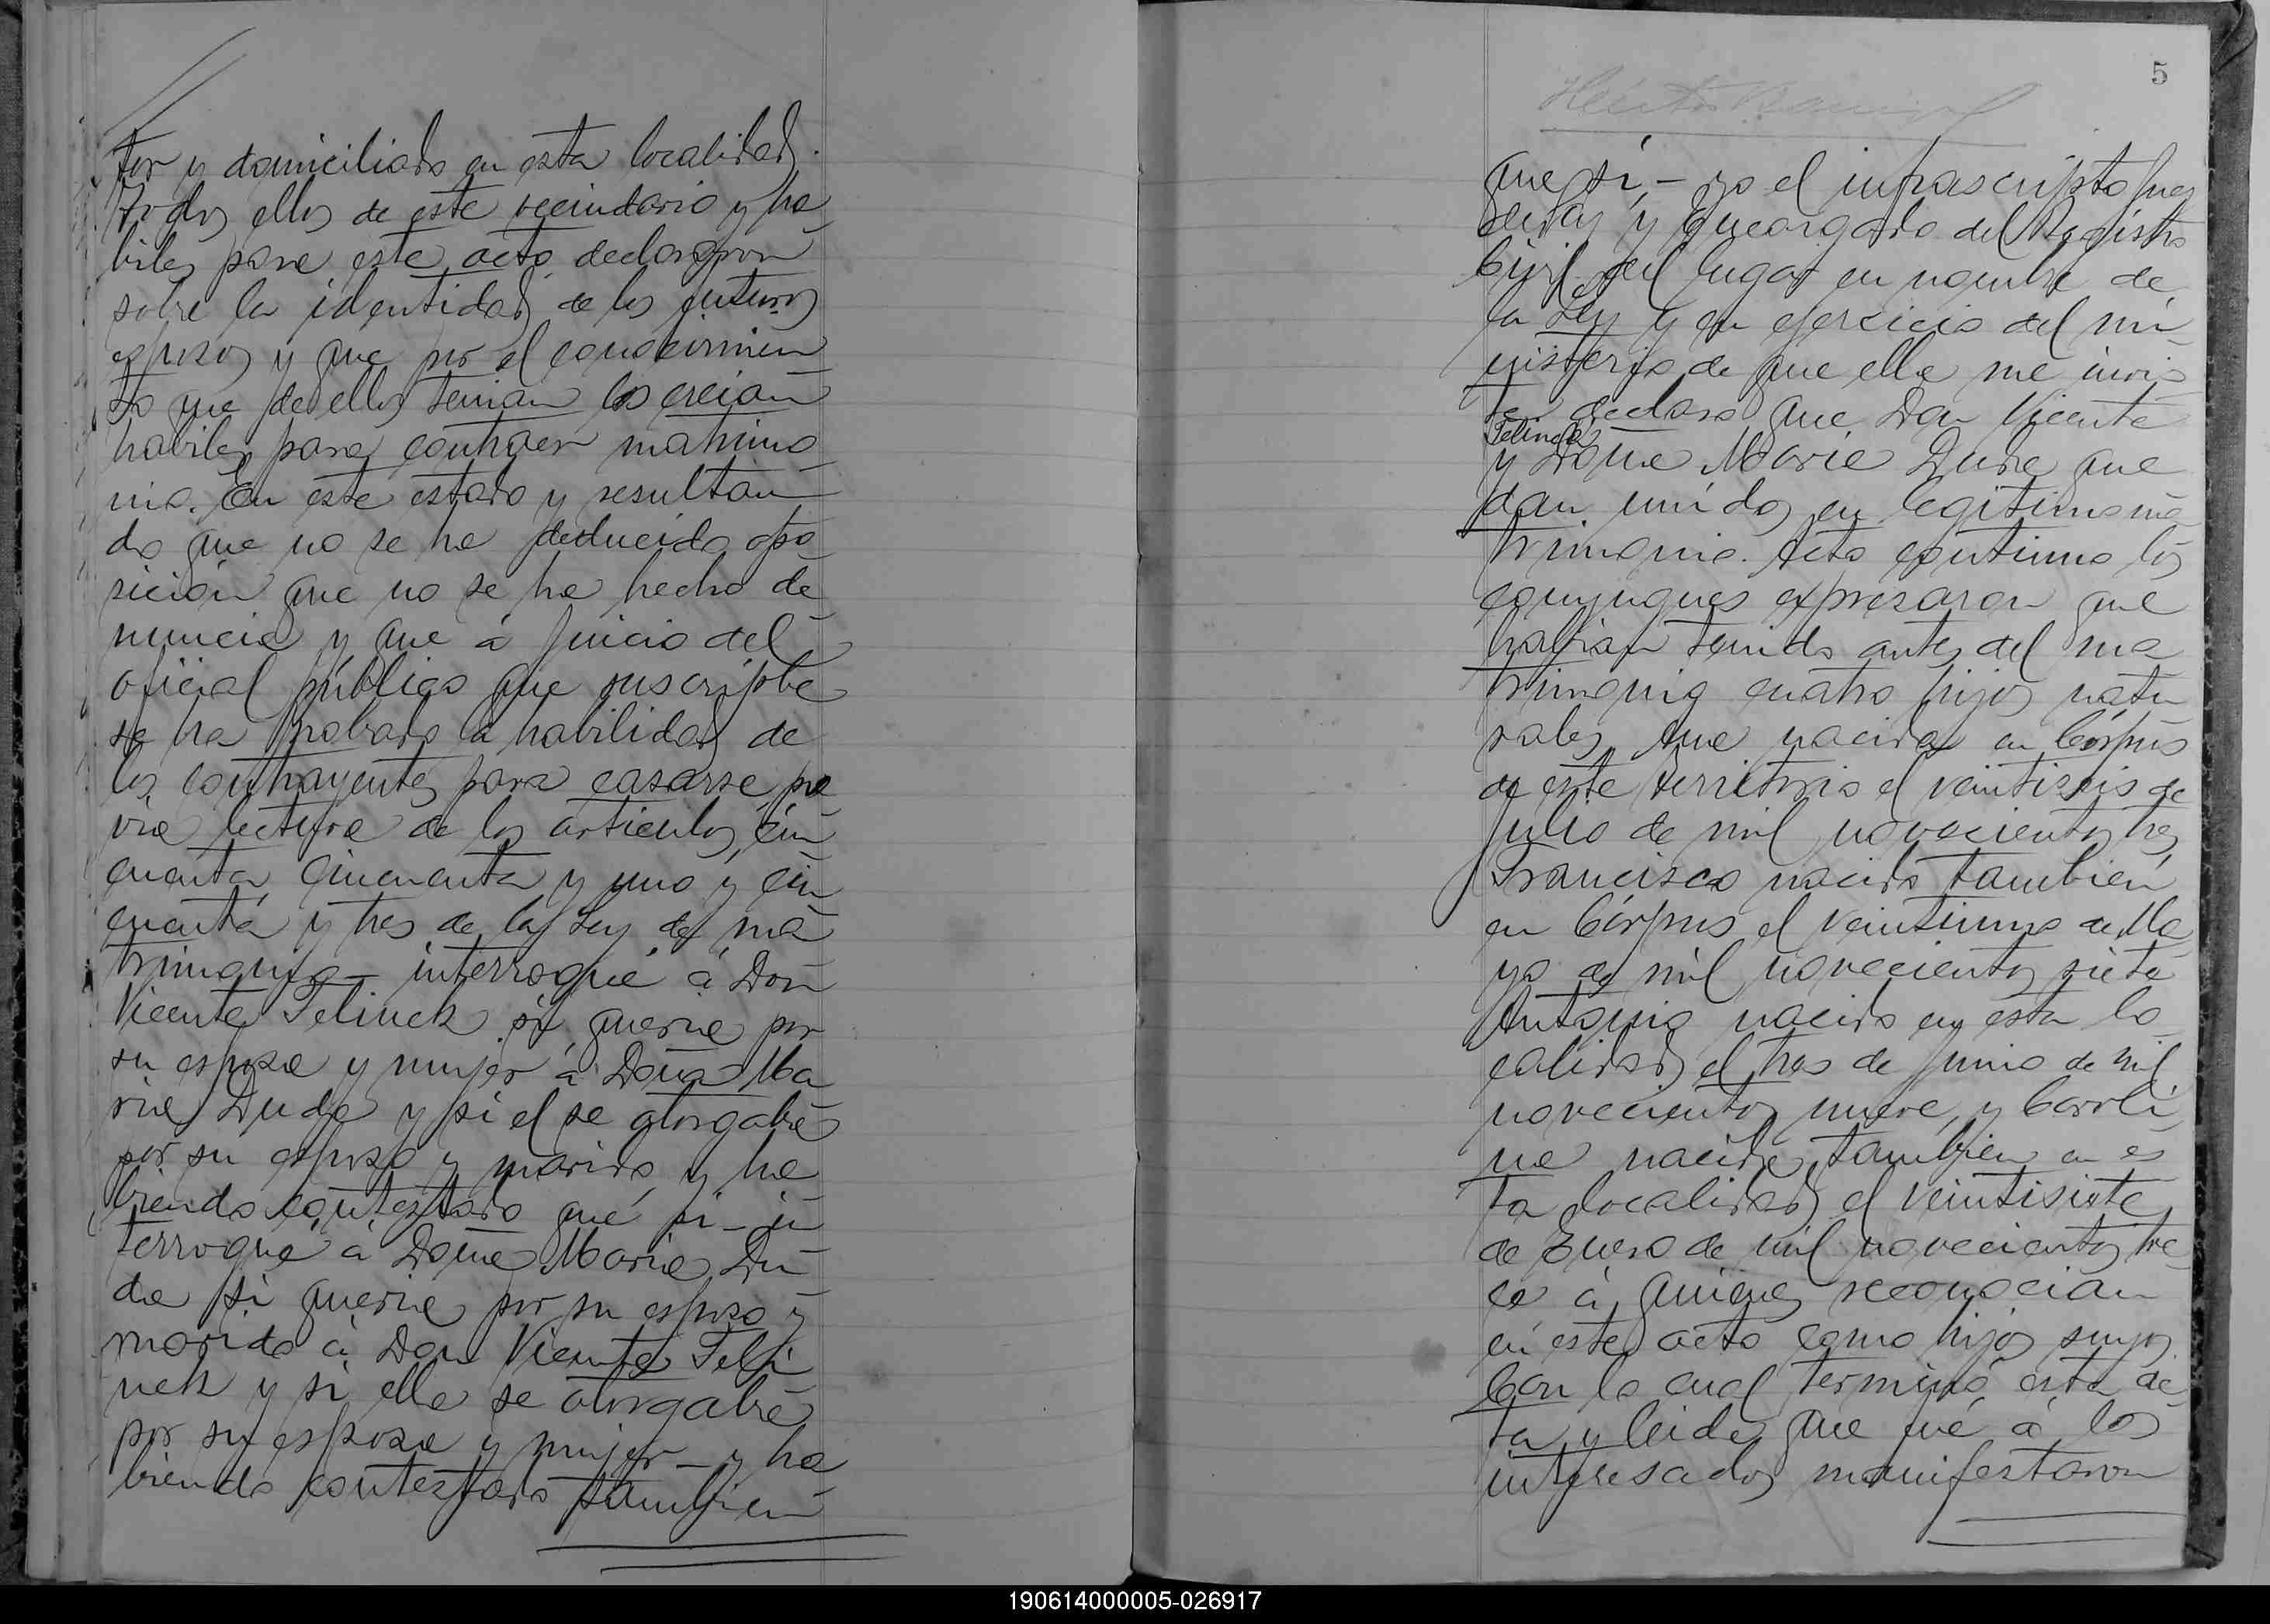 tor y domiciliado en esta localidad.
Todos ellos de este vecindario y ha
biles para este acto declararon
sobre la identidad de los futuros
esposos y que por el conocimien
to que de ellos tenian los creian
habiles para contraer matrimo
nio. En este estado y resultan
do que no se ha deducido opo
sición que no se ha hecho de
nuncia y que á juicio del
oficial público que suscripbe
se ha probado la habilidad de
los contrayentes para casarse, pre
via lectura de los articulos cin
cuenta, cincuenta y uno y cin
cuenta y tres de la Ley de ma
trimonio – interrogué á Don
Vicente Jelinek si queria por
su esposa y mujer á Doña Ma
ria Duda y si el se otorgaba
por su esposo y marido y ha
biendo contestado que si – in
terrogué á Doña Maria Du
da si queria por su esposo y
marido á Don Vicente Jeli
nek y si ella se otorgaba
por su esposa y mujer – y ha
biendo contestado tambien
5
que si, – yo el infrascripto Juez
de Paz y encargado del Registro
Civil del lugar en nombre de
la Ley y en ejercicio del mi
nisterio de que ella me invis
te declaro que Don Vicente
Jelinek
y Doña Maria Duda que
dan unidos en legitimo ma
trimonio. Acto continuo los
conyugues expresaron que
habian tenido antes del ma
trimonio cuatro hijos natu
rales, nacida en Córpus
de este territorio el veintiseis de
Julio de mil novecientos tres
Francisco nacido tambien
en Córpus el veintiuno de Ma
yo de mil novecientos siete
Antonio nacido en esta lo
calidad el tres de Junio de mil
novecientos nueve, y Caroli
na nacida tambien en es
ta localidad el veintisiete
de Enero de mil novecientos tre
ce á quienes reconocian
en este acto como hijos suyos.
Con lo cual terminó esta ac
ta y leida que fué á los
interesados manifestaron
190614000005-026917